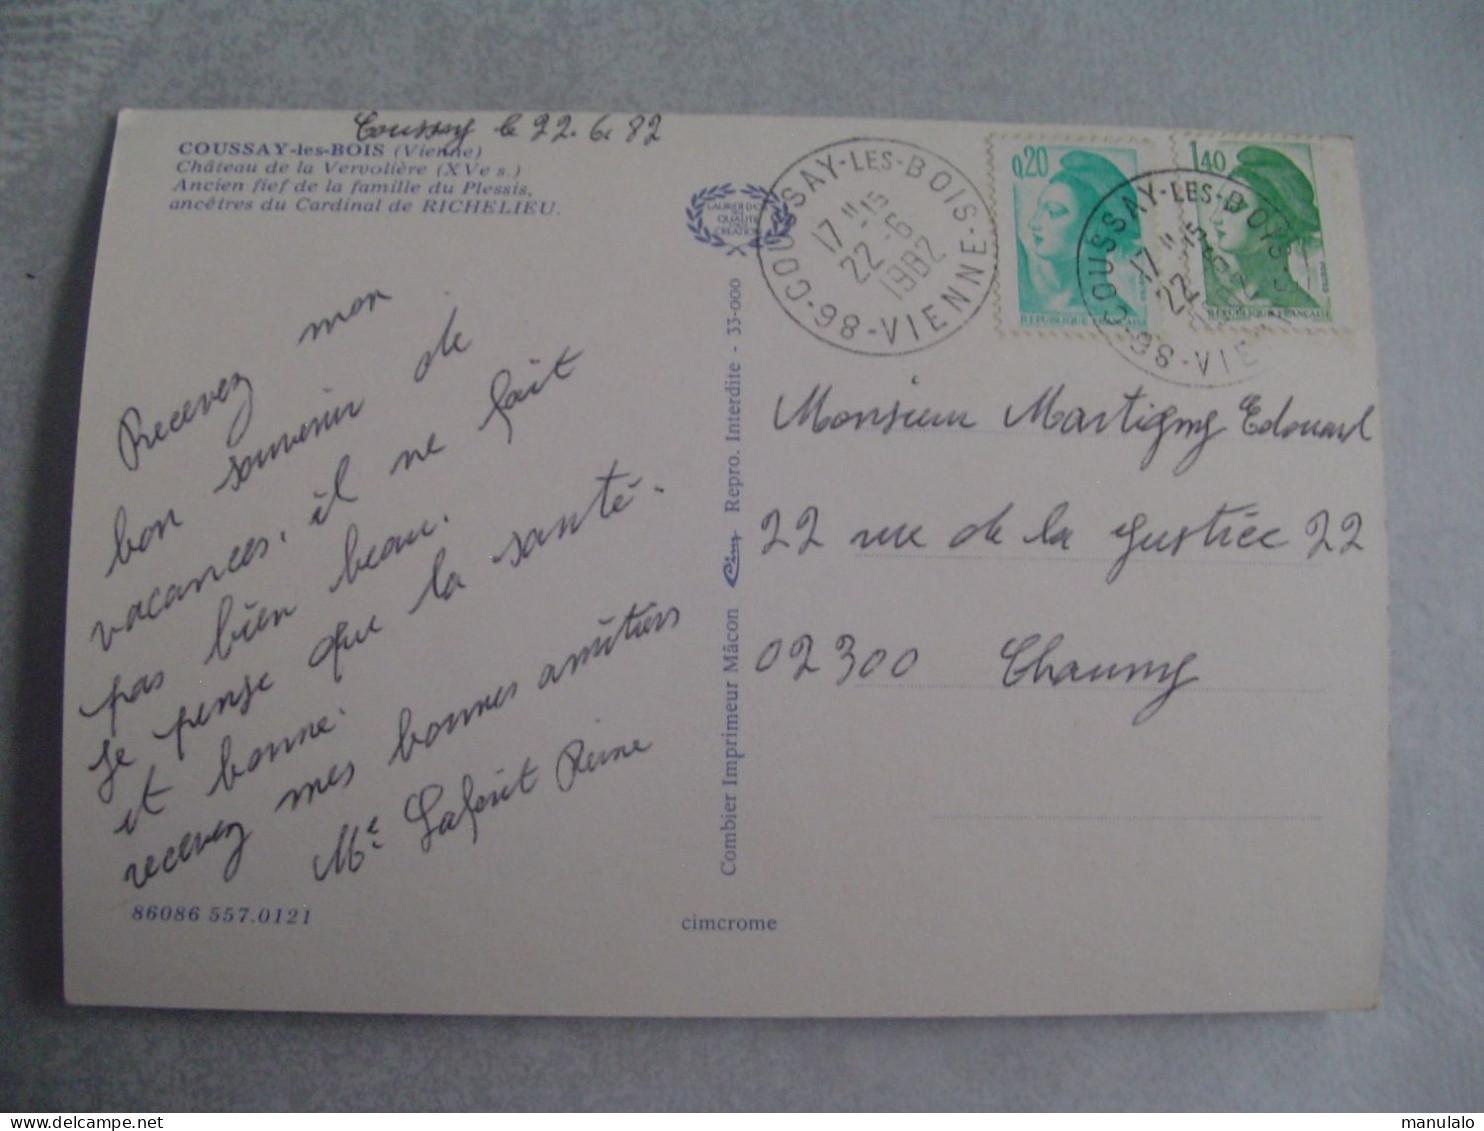 Coussay le 22.6.82
COUSSAY-les-BOIS (Vienne)
Château de la Vervolière (XVe s.)
Ancien fief de la famille du Plessis,
ancêtres du Cardinal de RICHELIEU.
Recevez mon
bon souvenir de
vacances. il ne fait
pas bien beau.
Je pense que la santé.
et bonne.
recevez mes bonnes amitiers
Me Laforit Reine
86086 557.0121
cimcrome
LAURIER D'OR
QUALITÉ
CREATION
Combier Imprimeur Mâcon Cim Repro. Interdite - 33-000
COUSSAY-LES-BOIS
17 H 15
22 - 6
1982
86 - VIENNE
0,20
REPUBLIQUE FRANÇAISE
1,40
REPUBLIQUE FRANÇAISE
COUSSAY-LES-BOIS
17 H 15
22
86 - VIE
Monsieur Martigny Edouard
22 rue de la Justice 22
02300 Chauny
manulalo